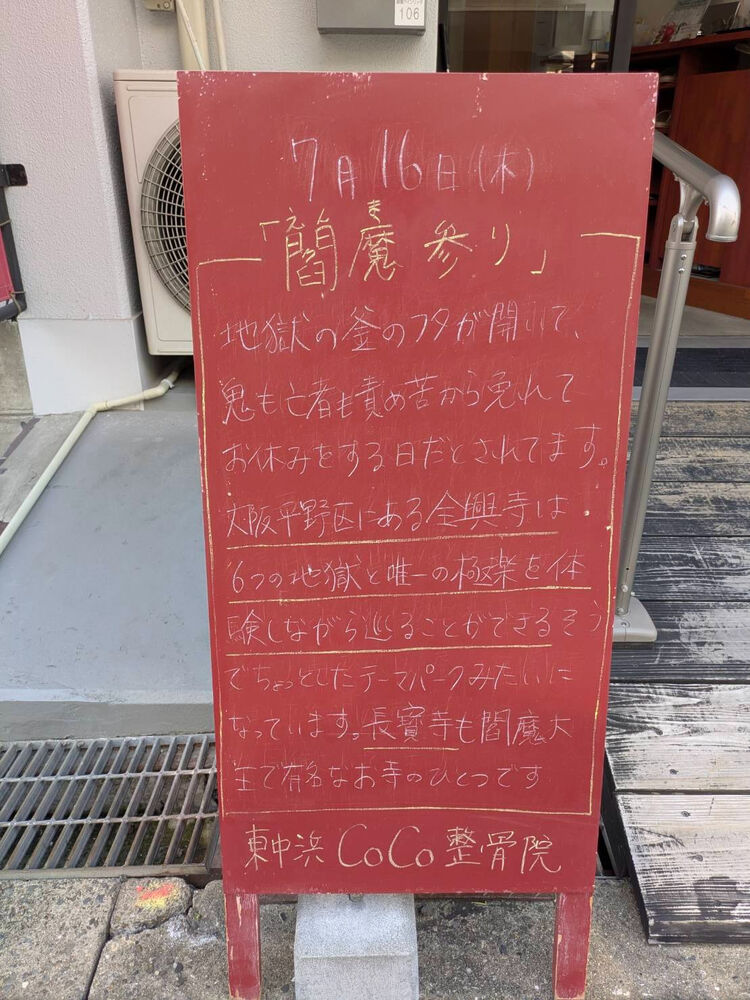 106
7月16日(木)
「閻魔参り」
えんま
地獄の釜のフタが開いて、
鬼も亡者も責め苦から免れて
お休みをする日だとされてます。
大阪平野区にある全興寺は
6つの地獄と唯一の極楽を体
験しながら巡ることができるそう
でちょっとしたテーマパークみたいに
なっています。長寳寺も閻魔大
王で有名なお寺のひとつです
東中浜CoCo整骨院